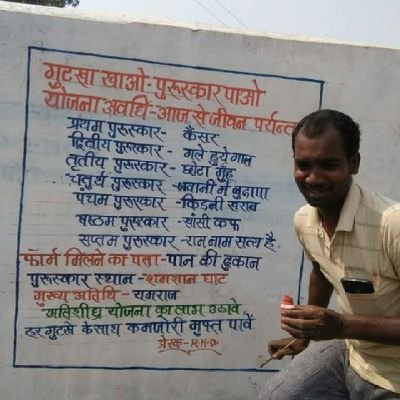 गुटखा खाओ - पुरूस्कार पाओ
योजना अवधि - आज से जीवन पर्यन्त
प्रथम पुरूस्कार - कैंसर
द्वितीय पुरूस्कार - गले हुये गाल
तृतीय पुरूस्कार - छोटा मुँह
चतुर्थ पुरूस्कार - जवानी में बुढ़ापा
पंचम पुरूस्कार - किडनी खराब
षष्ठम पुरूस्कार - खांसी कफ
सप्तम पुरूस्कार - राम नाम सत्य है
फॉर्म मिलने का पता - पान की दुकान
पुरूस्कार स्थान - शमशान घाट
मुख्य अतिथि - यमराज
अतिशीघ्र योजना का लाभ उठावे
हर गुटखे के साथ कमजोरी मुफ्त पावें
प्रेरक - R.H.O.